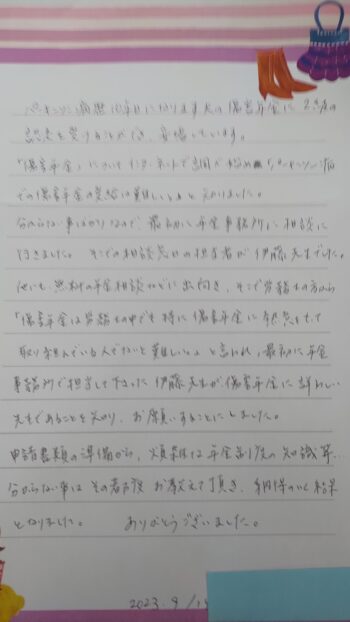 パーキンソン病歴10年目になります夫の障害年金に2級の
認定を受けることができ、安堵しています。
「障害年金」についてインターネットで調べ始め「パーキンソン」病
での障害年金の受給は難しいと知りました。
分からない事ばかりなので、最初に年金事務所に相談に
行きました。そこでの相談先日の担当者が伊藤先生でした。
他にも無料の年金相談などに出向き、そこで労務士の方から
「障害年金は労務士の中でも特に障害年金に熱意をもって
取り組んでいる人でないと難しい」と言われ、最初に年金
事務所で担当して下さった伊藤先生が障害年金に詳しい
先生であることを知り、お願いすることにしました。
申請書類の準備から、煩雑な年金制度の知識等…
分からない事はその都度お教えて頂き、納得のいく結果
となりました。 ありがとうございました。
2023.9/19